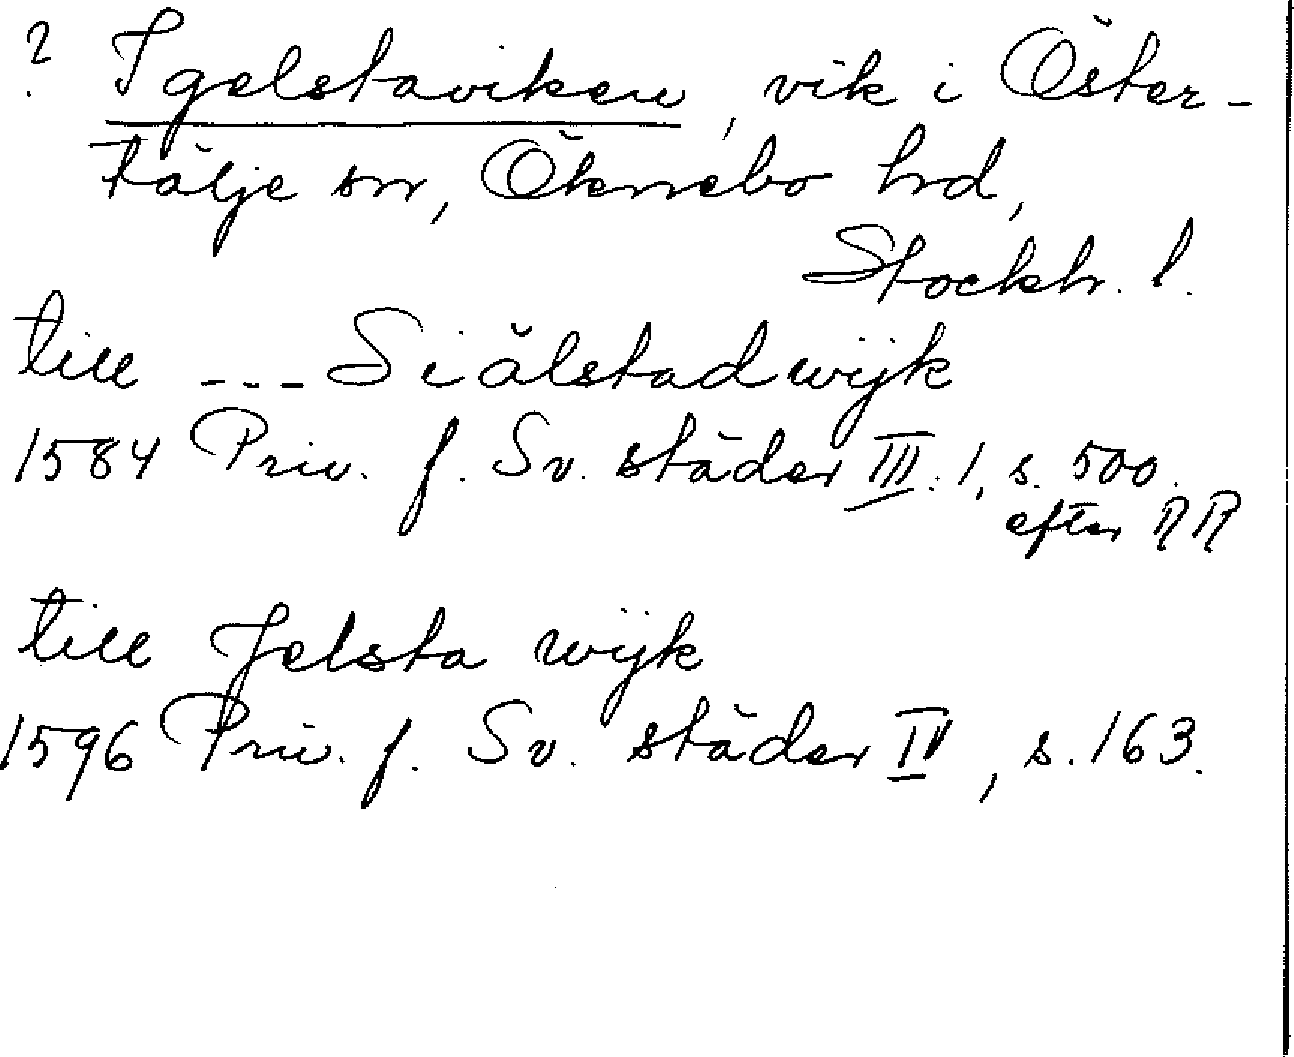 ? Igelstaviken, vik i Öster-
tälje sn, Öknebo hd,
Stockh. l.
till --- Siälstadwijk
1584 Priv. f. Sv. städer III. 1, s. 500.
efter RR
till Jelsta wijk
1596 Priv. f. Sv. städer IV, s. 163.